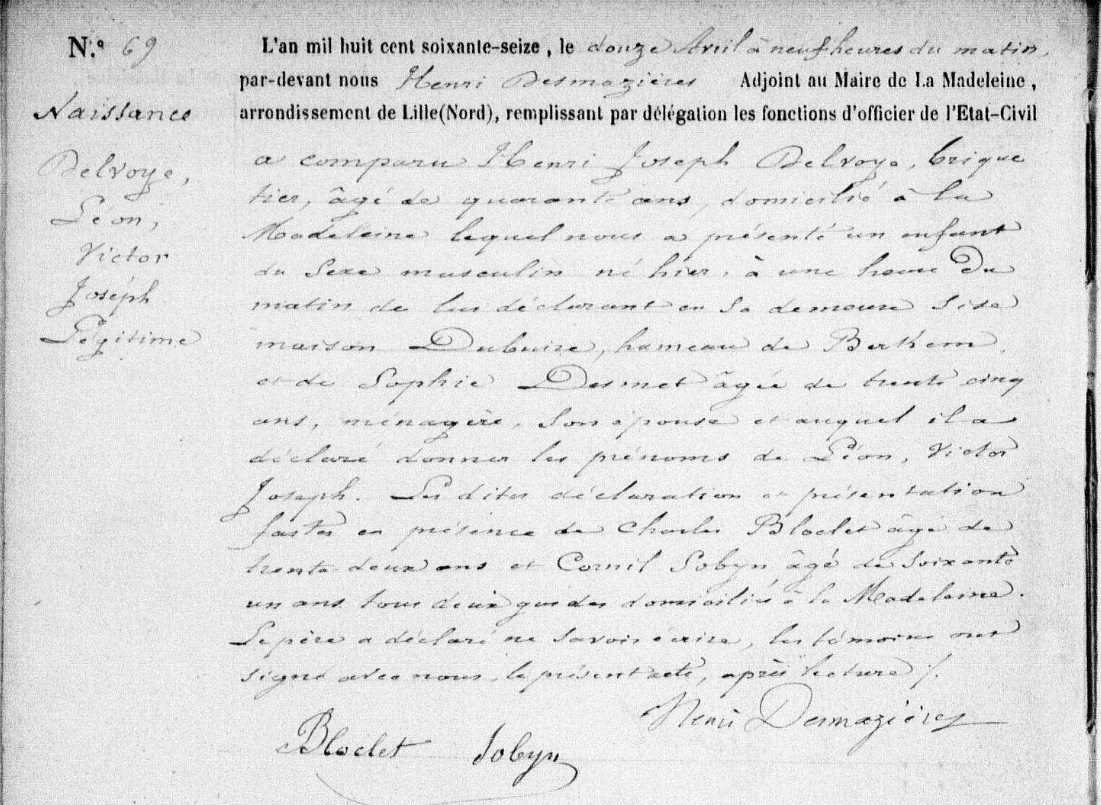 N.º 69
Naissance
Delroye,
Léon,
Victor
Joseph
Légitime
L'an mil huit cent soixante-seize, le douze Avril à neuf heures du matin,
par-devant nous Henri Desmazières Adjoint au Maire de La Madeleine,
arrondissement de Lille(Nord), remplissant par délégation les fonctions d'officier de l'Etat-Civil
a comparu Henri Joseph Delroye, brique
tier, âgé de quarante ans, domicilié à la
Madeleine lequel nous a présenté un enfant
du sexe masculin né hier, à une heure du
matin de lui déclarant en sa demeure sise
maison Dubuire, hameau de Berkem,
et de Sophie Desmet âgée de trente cinq
ans, ménagère, son épouse et auquel il a
déclaré donner les prénoms de Léon, Victor
Joseph. Les dites déclaration et présentation
faites en présence de Charles Bloclet âgé de
trente deux ans et Cornil Sobyn âgé de soixante
un ans tous deux gardes domiciliés à la Madeleine.
Le père a déclaré ne savoir écrire, les témoins ont
signé avec nous le présent acte, après lecture /.
Henri Desmazières
Bloclet Sobyn